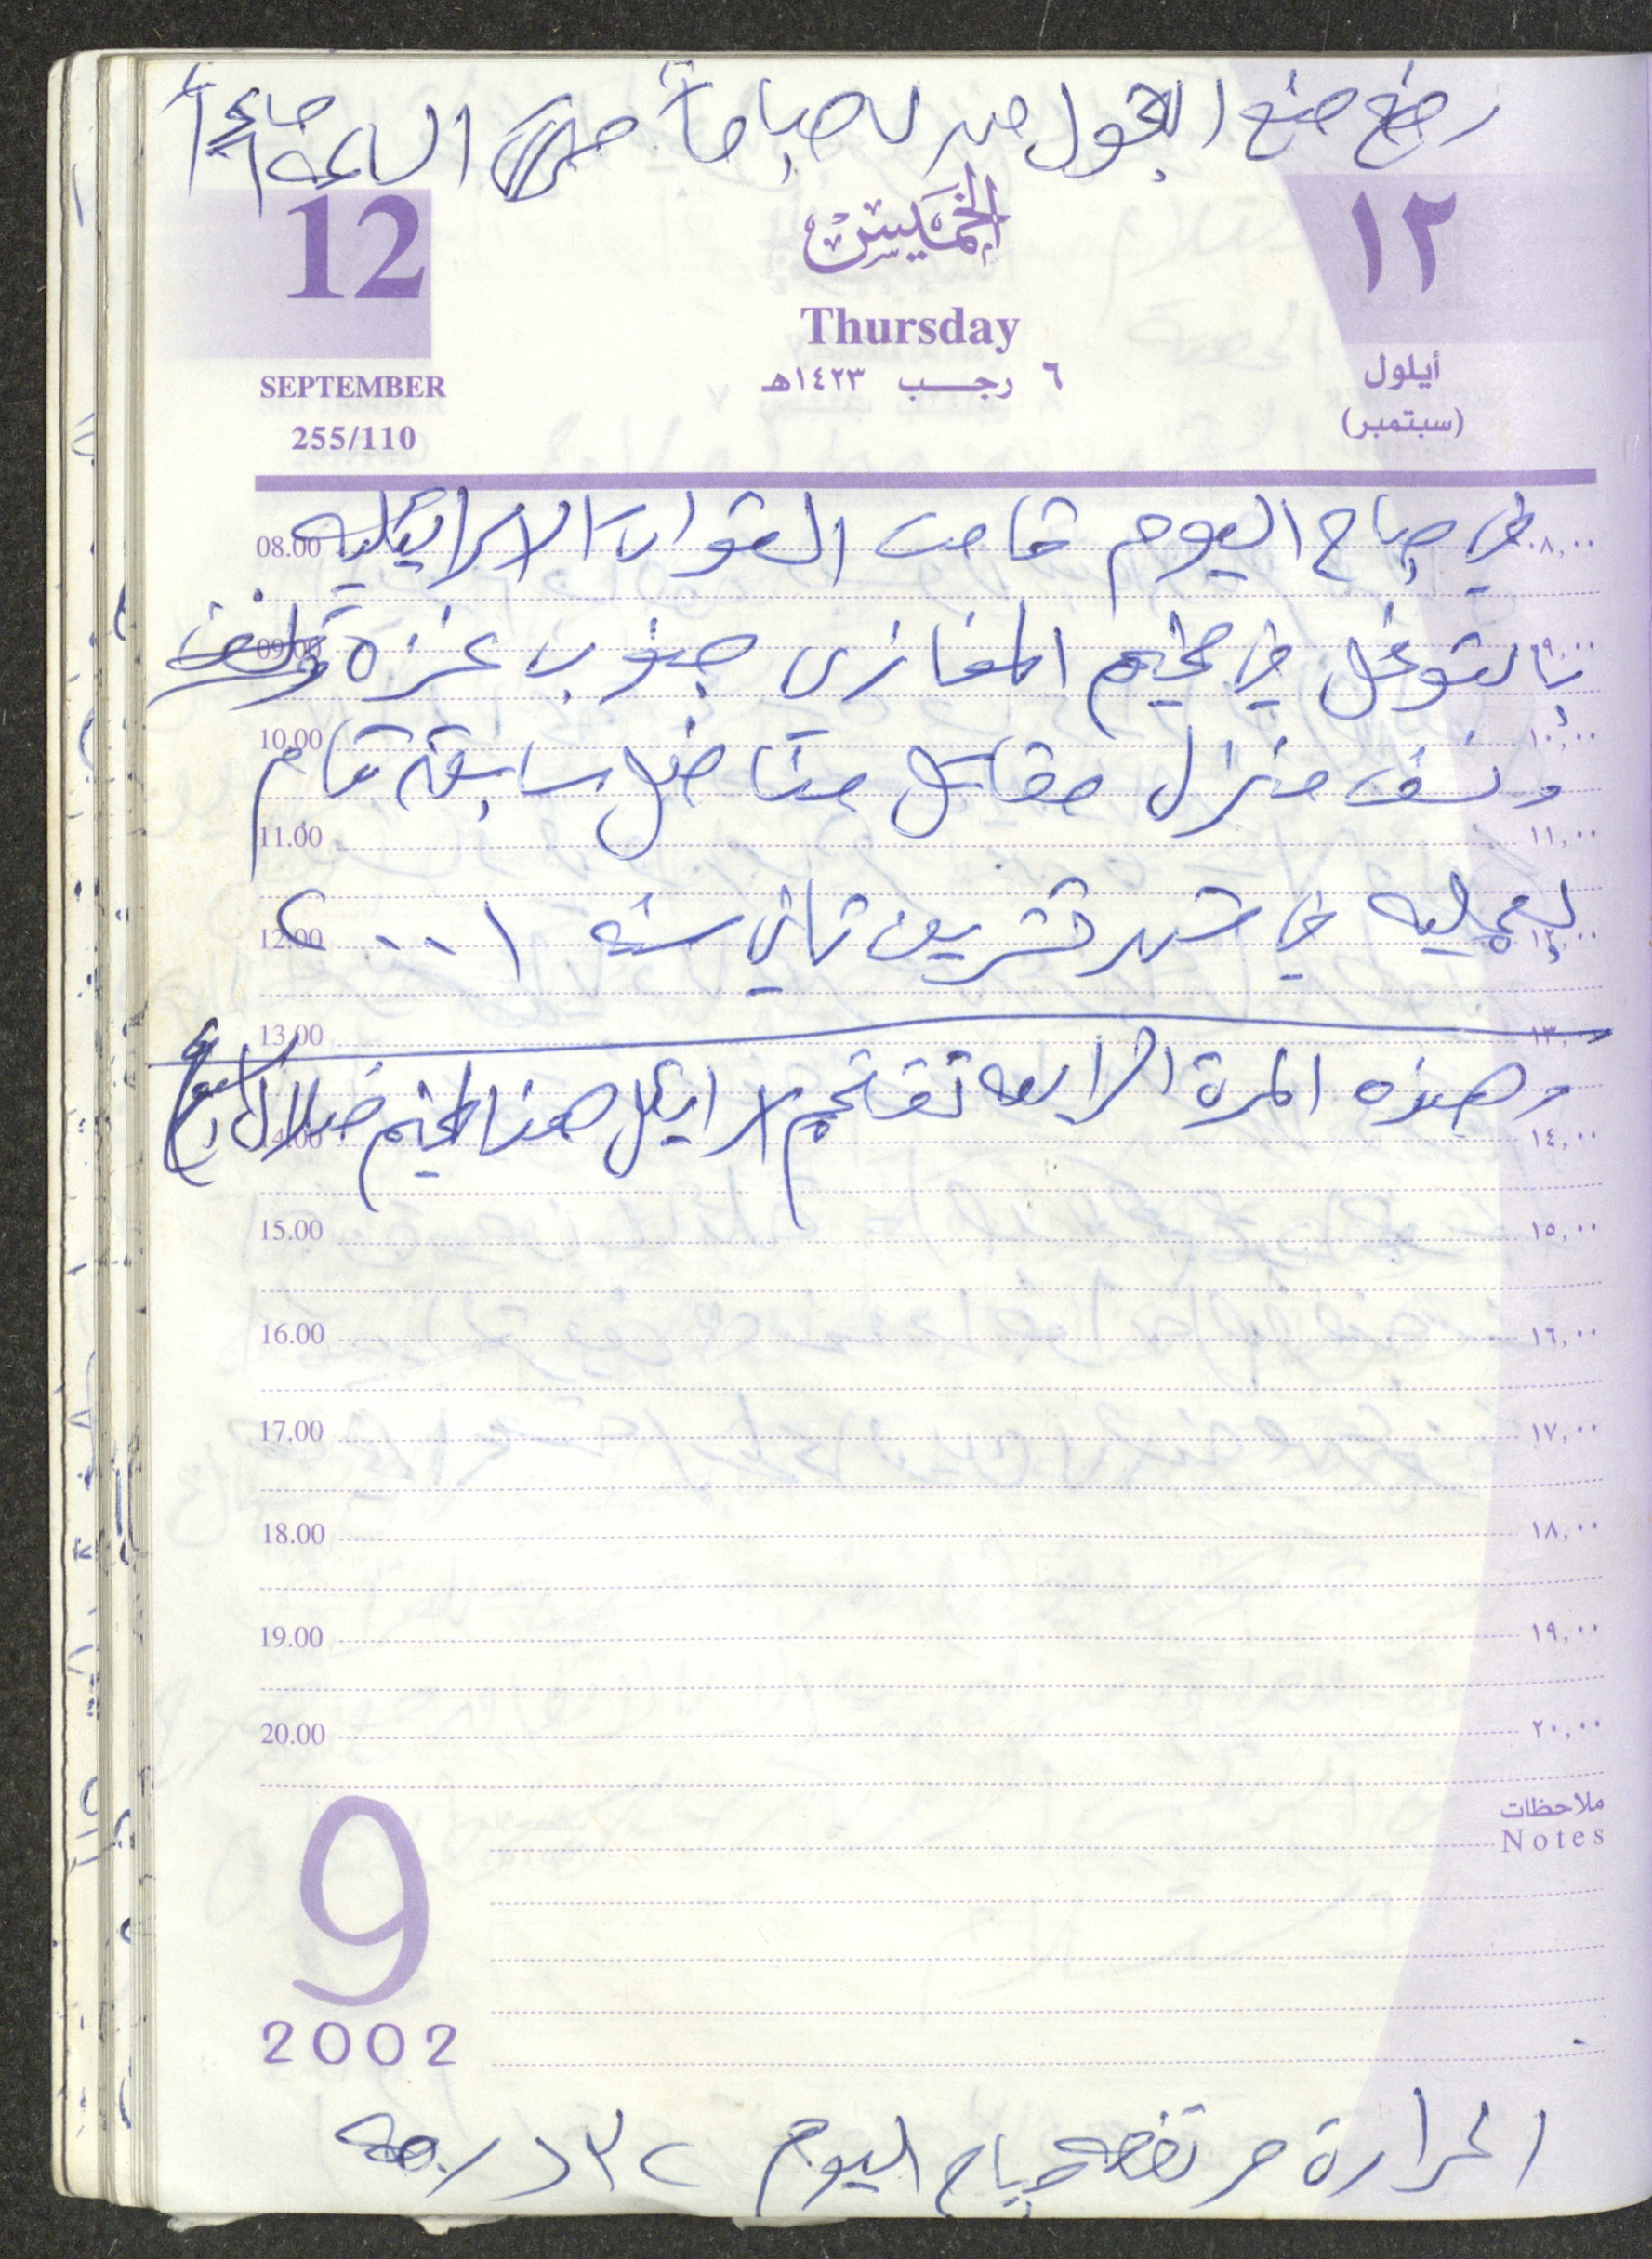 رفع منع التجول من صباحاً الساعة
12
الخميس
١٢
Thursday
أيلول
SEPTEMBER
٦ رجب ١٤٢٣هـ
(سبتمبر)
255/110
في صباح اليوم قامت القوات الاسرائيليه
08.00 ٠٨,٠٠
بالتوغل في مخيم المغازى جنوب غزة
09.00 ٠٩,٠٠
ونسف منزل مقابل مناضل سابقة قام
10.00 ١٠,٠٠
11.00 ١١,٠٠
بعمليه في شهر تشرين تاني سنه ٢٠٠١
12.00 ١٢,٠٠
13.00 ١٣,٠٠
وهذه المرة الرابعه تقتحم اسرائيل هذا المخيم خلال اسبوع
14.00 ١٤,٠٠
15.00 ١٥,٠٠
16.00 ١٦,٠٠
17.00 ١٧,٠٠
18.00 ١٨,٠٠
19.00 ١٩,٠٠
20.00 ٢٠,٠٠
ملاحظات
Notes
9
2002
الحرارة مرتفعه صباح اليوم ٣٢ درجه